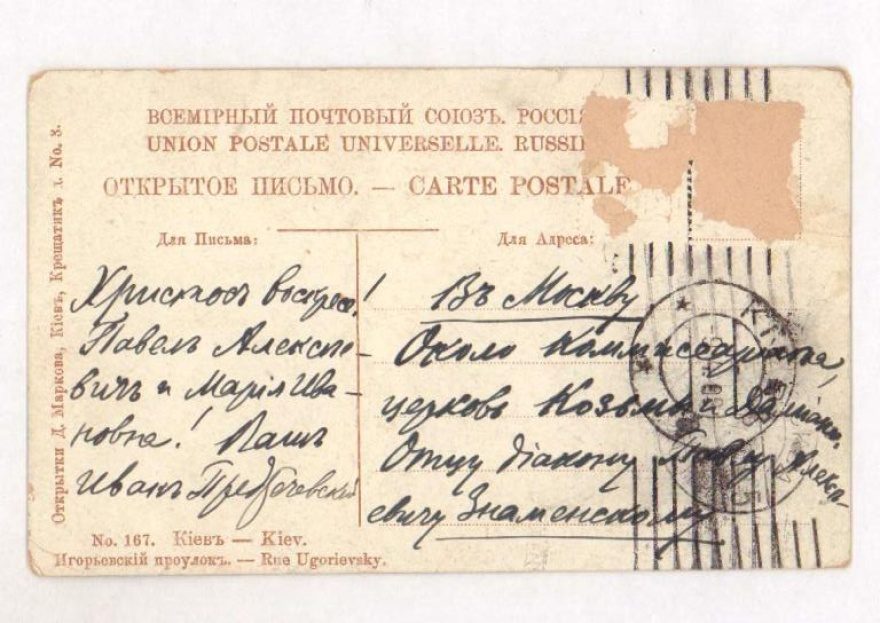 ВСЕМІРНЫЙ ПОЧТОВЫЙ СОЮЗЪ. РОССІЯ
UNION POSTALE UNIVERSELLE. RUSSIE
ОТКРЫТОЕ ПИСЬМО. — CARTE POSTALE
Для Письма:
Христосъ воскресе!
Павелъ Алексѣе-
вичъ и Марія Ива-
новна! Вашъ
Иванъ
Для Адреса:
Въ Москву
Около Коммиссаріата,
церковь Козьмы и Даміана.
Отцу діакону Павлу Алексѣ-
евичу Знаменскому
No. 167. Кіевъ — Kiev.
Игорьевскій проулокъ. — Rue Ugorievsky.
Открытки Д. Маркова, Кіевъ, Крещатикъ 1. No. 3.